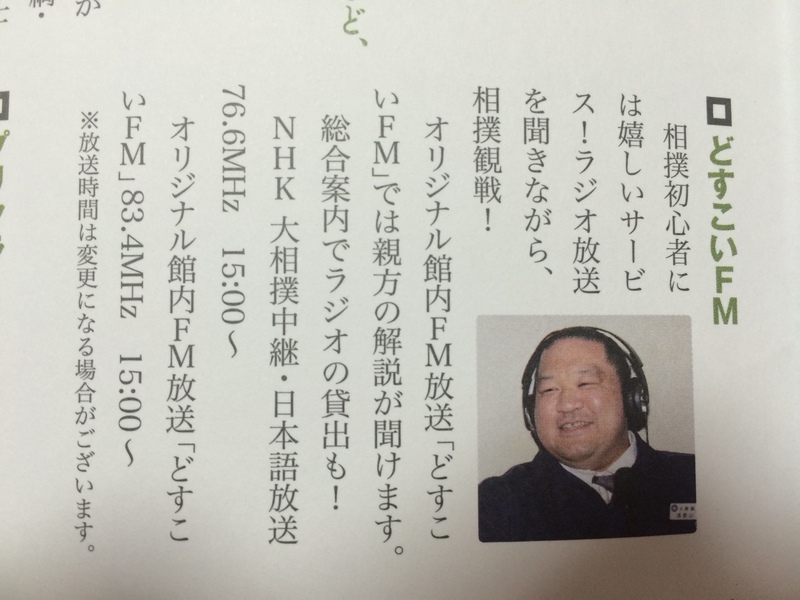 ど、
が
綱・
□どすこいFM
相撲初心者に
は嬉しいサービ
ス！ラジオ放送
を聞きながら、
相撲観戦！
オリジナル館内FM放送「どすこ
いFM」では親方の解説が聞けます。
総合案内でラジオの貸出も！
NHK 大相撲中継・日本語放送
76.6MHz　15:00～
オリジナル館内FM放送「どすこ
いFM」83.4MHz　15:00～
※放送時間は変更になる場合がございます。